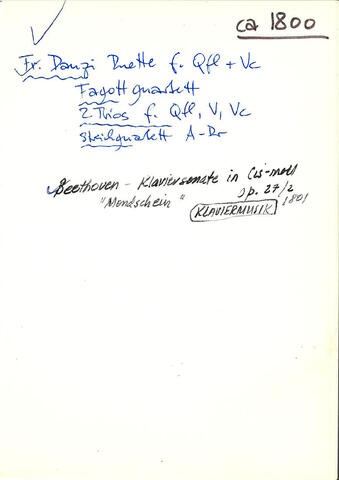 ca 1800
Fr. Danzi Duette f. Qfl + Vc
Fagottquartett
2 Trios f. Qfl, V, Vc
Streichquartett A-Dr
Beethoven - Klaviersonate in Cis-moll
op. 27/2
"Mondschein"
KLAVIERMUSIK
1801